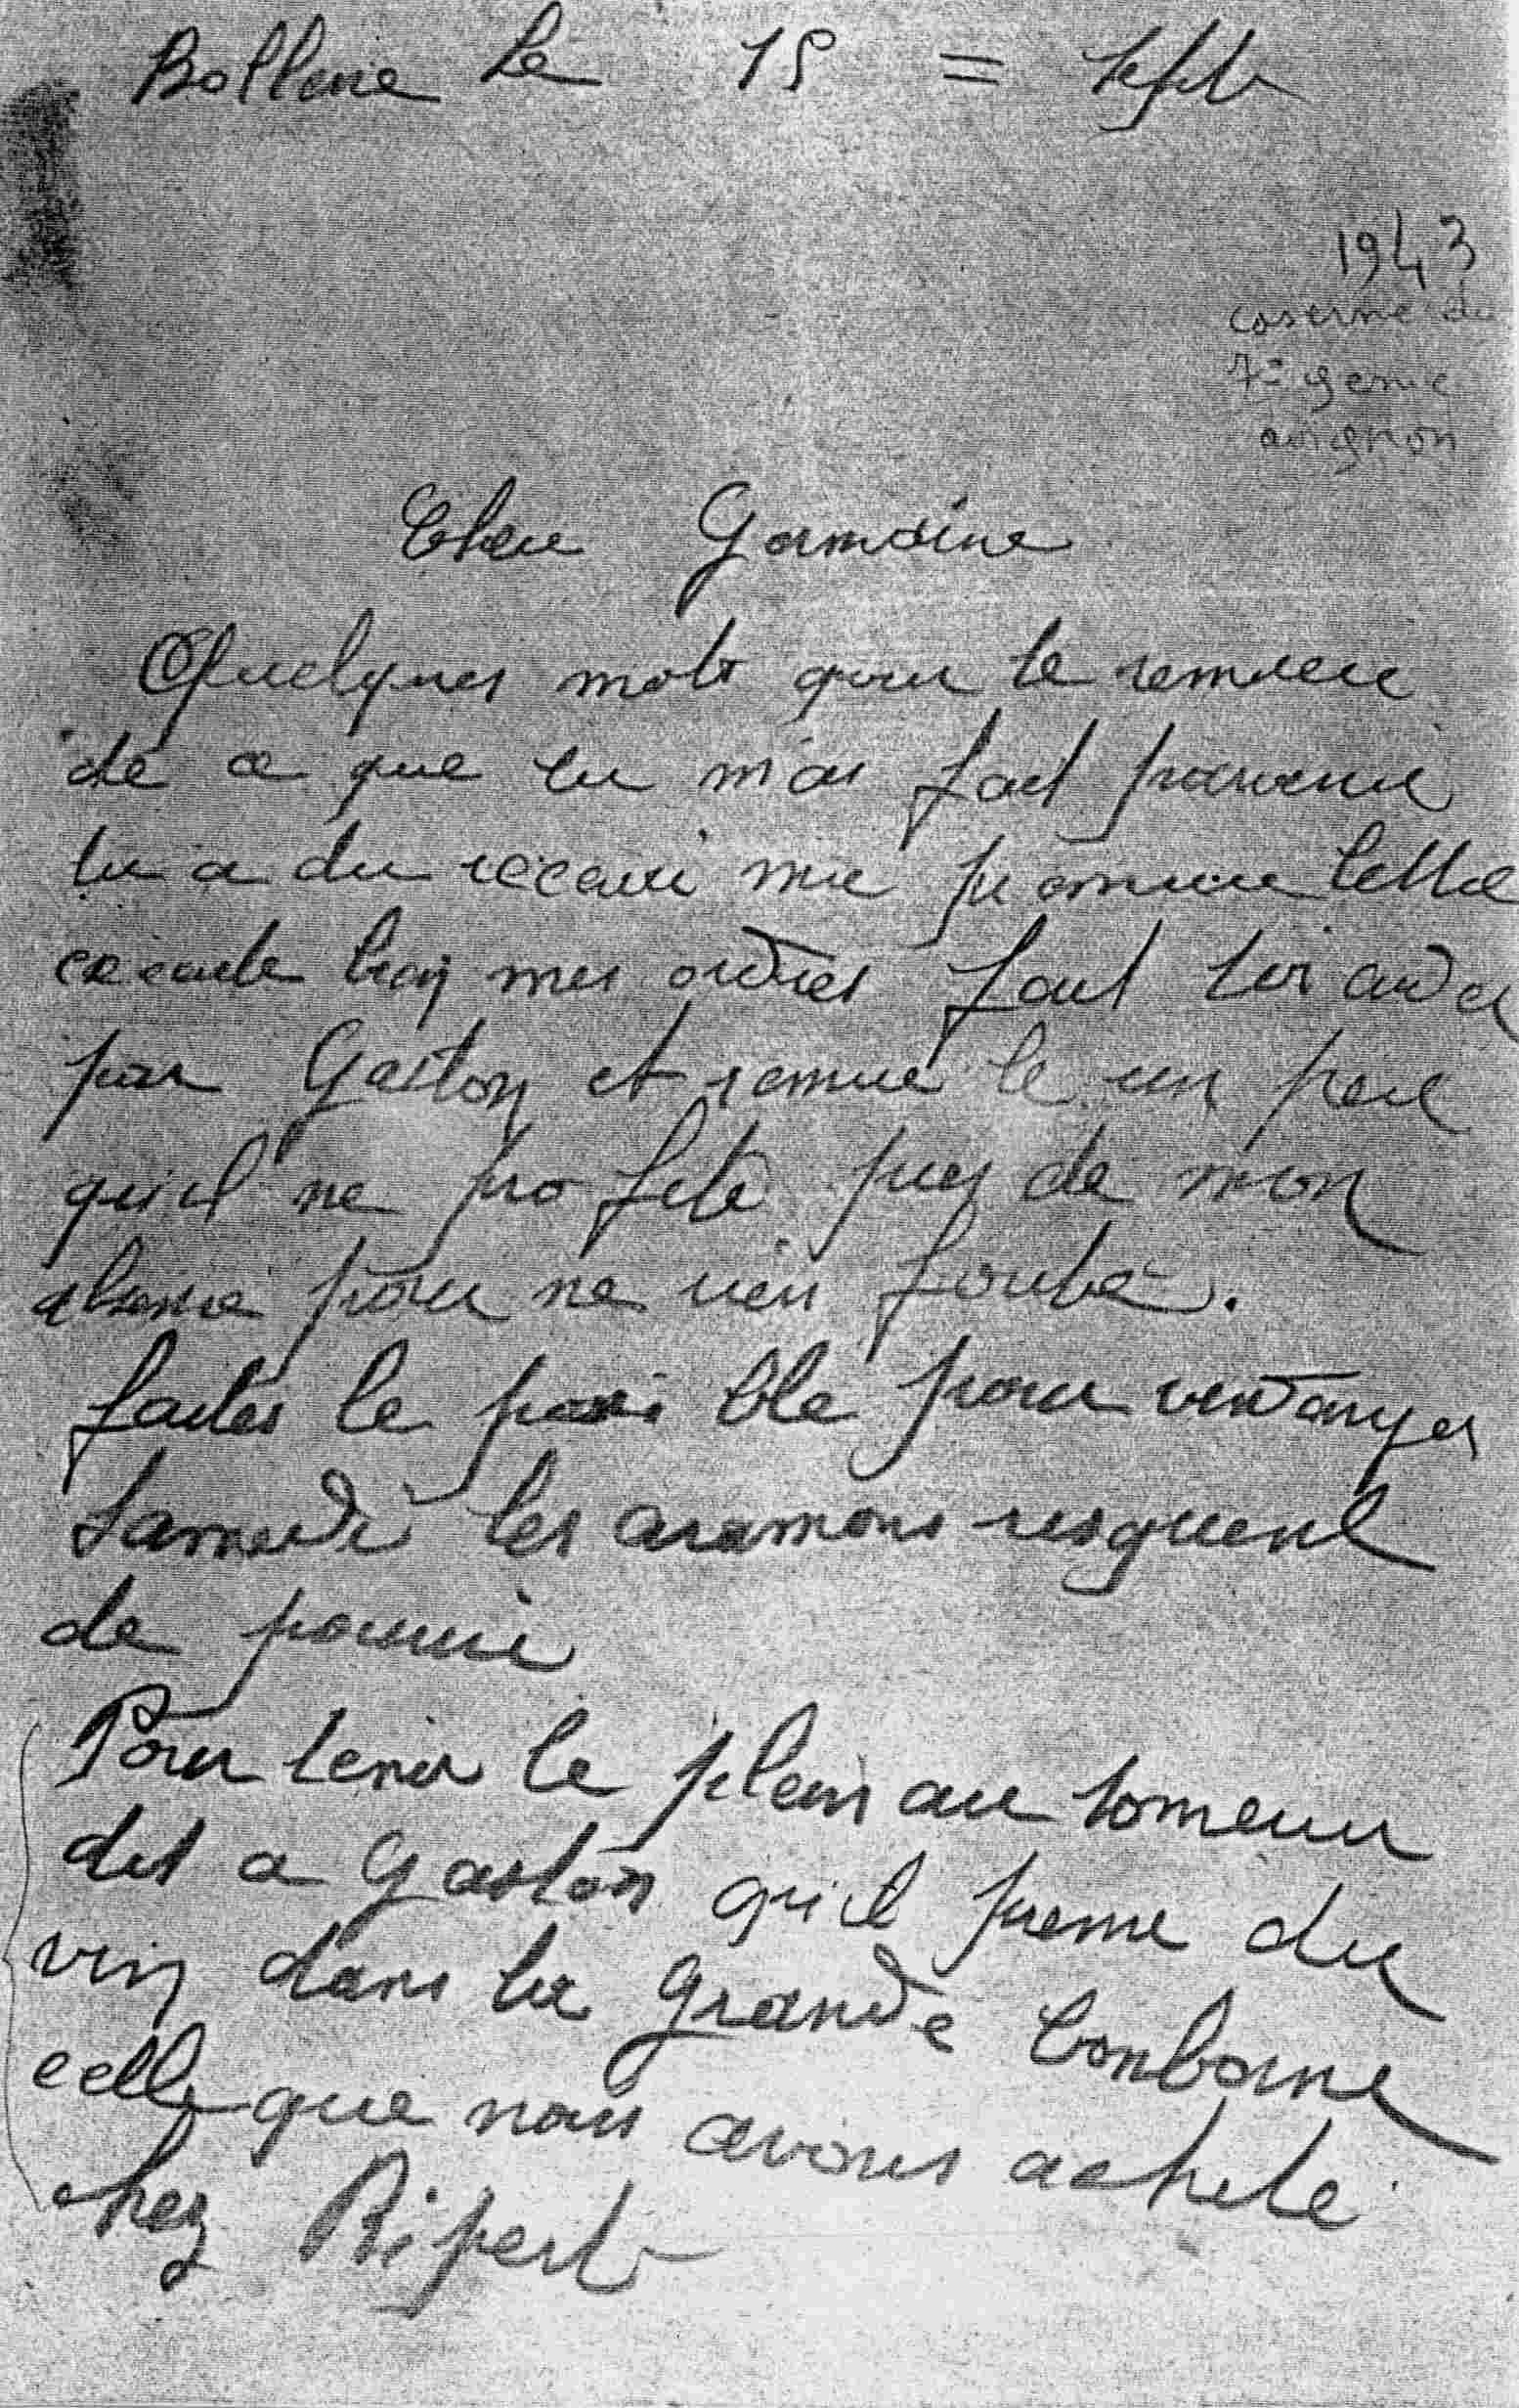 Bollene le 15 = Sept
1943
caserne du
7e genie
avignon
Chere Germaine
Quelques mots pour te remercie
de ce que tu m'as fait parvenir
tu a du recevoir ma premiere lettre
execute bien mes ordres fait toi aider
par Gaston et remue le un peu
qu'il ne profite pas de mon
absence pour ne rien foutre.
faites le possible pour vendanger
Samedi les aramons risquent
de pourrir
Pour tenir le plein au tonneau
dit a Gaston qu'il prenne du
vin dans la grande bonbonne
celle que nous avons achete
chez Ripert